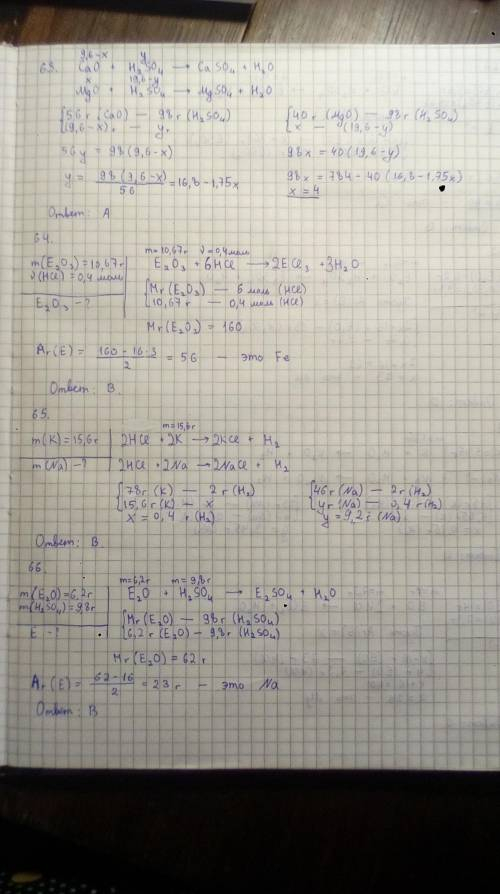 63.
9,6-x y
CaO + H₂SO₄ → CaSO₄ + H₂O
x 19,6-y
MgO + H₂SO₄ → MgSO₄ + H₂O
56 г (CaO) — 98 г (H₂SO₄)
(9,6-x) г — y г
40 г (MgO) — 98 г (H₂SO₄)
x — (19,6-y)
56y = 98(9,6-x)
98x = 40(19,6-y)
y = 98(9,6-x)/56 = 16,8-1,75x
98x = 784-40(16,8-1,75x)
x = 4
Ответ: А
64.
m(E₂O₃)=10,67г
ν(HCl)=0,4 моль
E₂O₃ -?
m=10,67г ν=0,4моль
E₂O₃ + 6HCl → 2ECl₃ + 3H₂O
Mr(E₂O₃) — 6 моль (HCl)
10,67 г — 0,4 моль (HCl)
Mr(E₂O₃) = 160
Ar(E) = 160-16·3/2 = 56 — это Fe
Ответ: В.
65
m(K)=15,6г
m(Na)-?
m=15,6г
2HCl + 2K → 2KCl + H₂
2HCl + 2Na → 2NaCl + H₂
78г (K) — 2 г (H₂)
15,6г (K) — x
x = 0,4 г (H₂)
46г (Na) — 2г (H₂)
yг (Na) — 0,4 г (H₂)
y = 9,2 г (Na)
Ответ: В.
66
m(E₂O)=6,2г
m(H₂SO₄)=98г
E -?
m=6,2г m=9,8г
E₂O + H₂SO₄ → E₂SO₄ + H₂O
Mr(E₂O) — 98г (H₂SO₄)
6,2г (E₂O) — 9,8г (H₂SO₄)
Mr(E₂O) = 62 г
Ar(E) = 62-16/2 = 23 г — это Na
Ответ: В